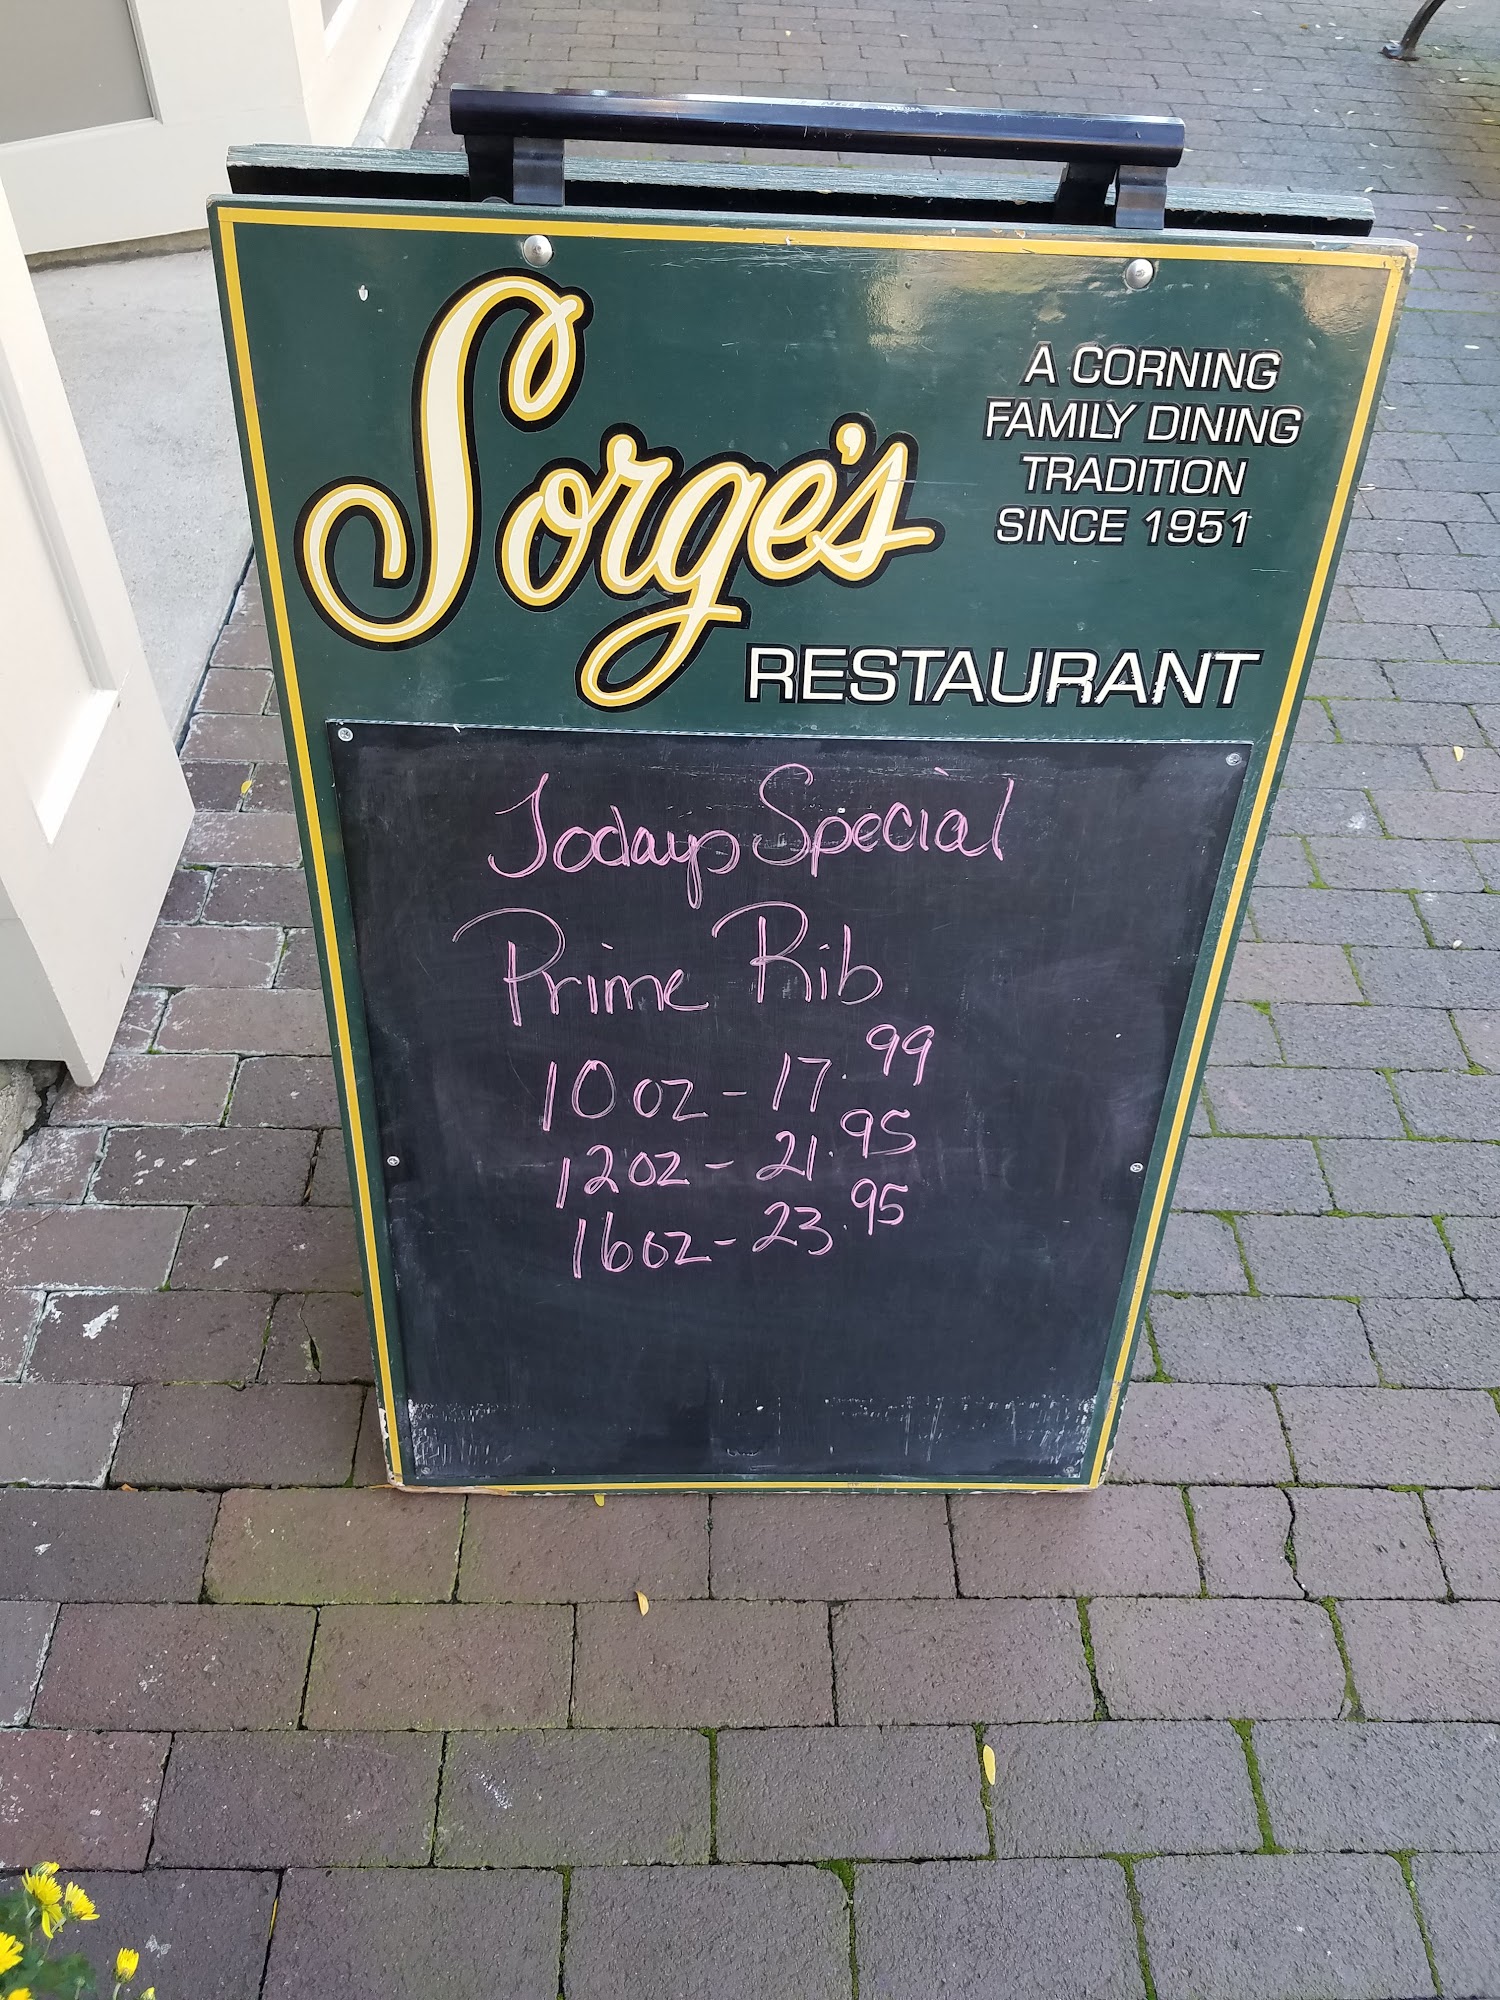 Sorge's
A CORNING
FAMILY DINING
TRADITION
SINCE 1951
RESTAURANT
Todays Special
Prime Rib
10oz - 17.99
12oz - 21.95
16oz - 23.95